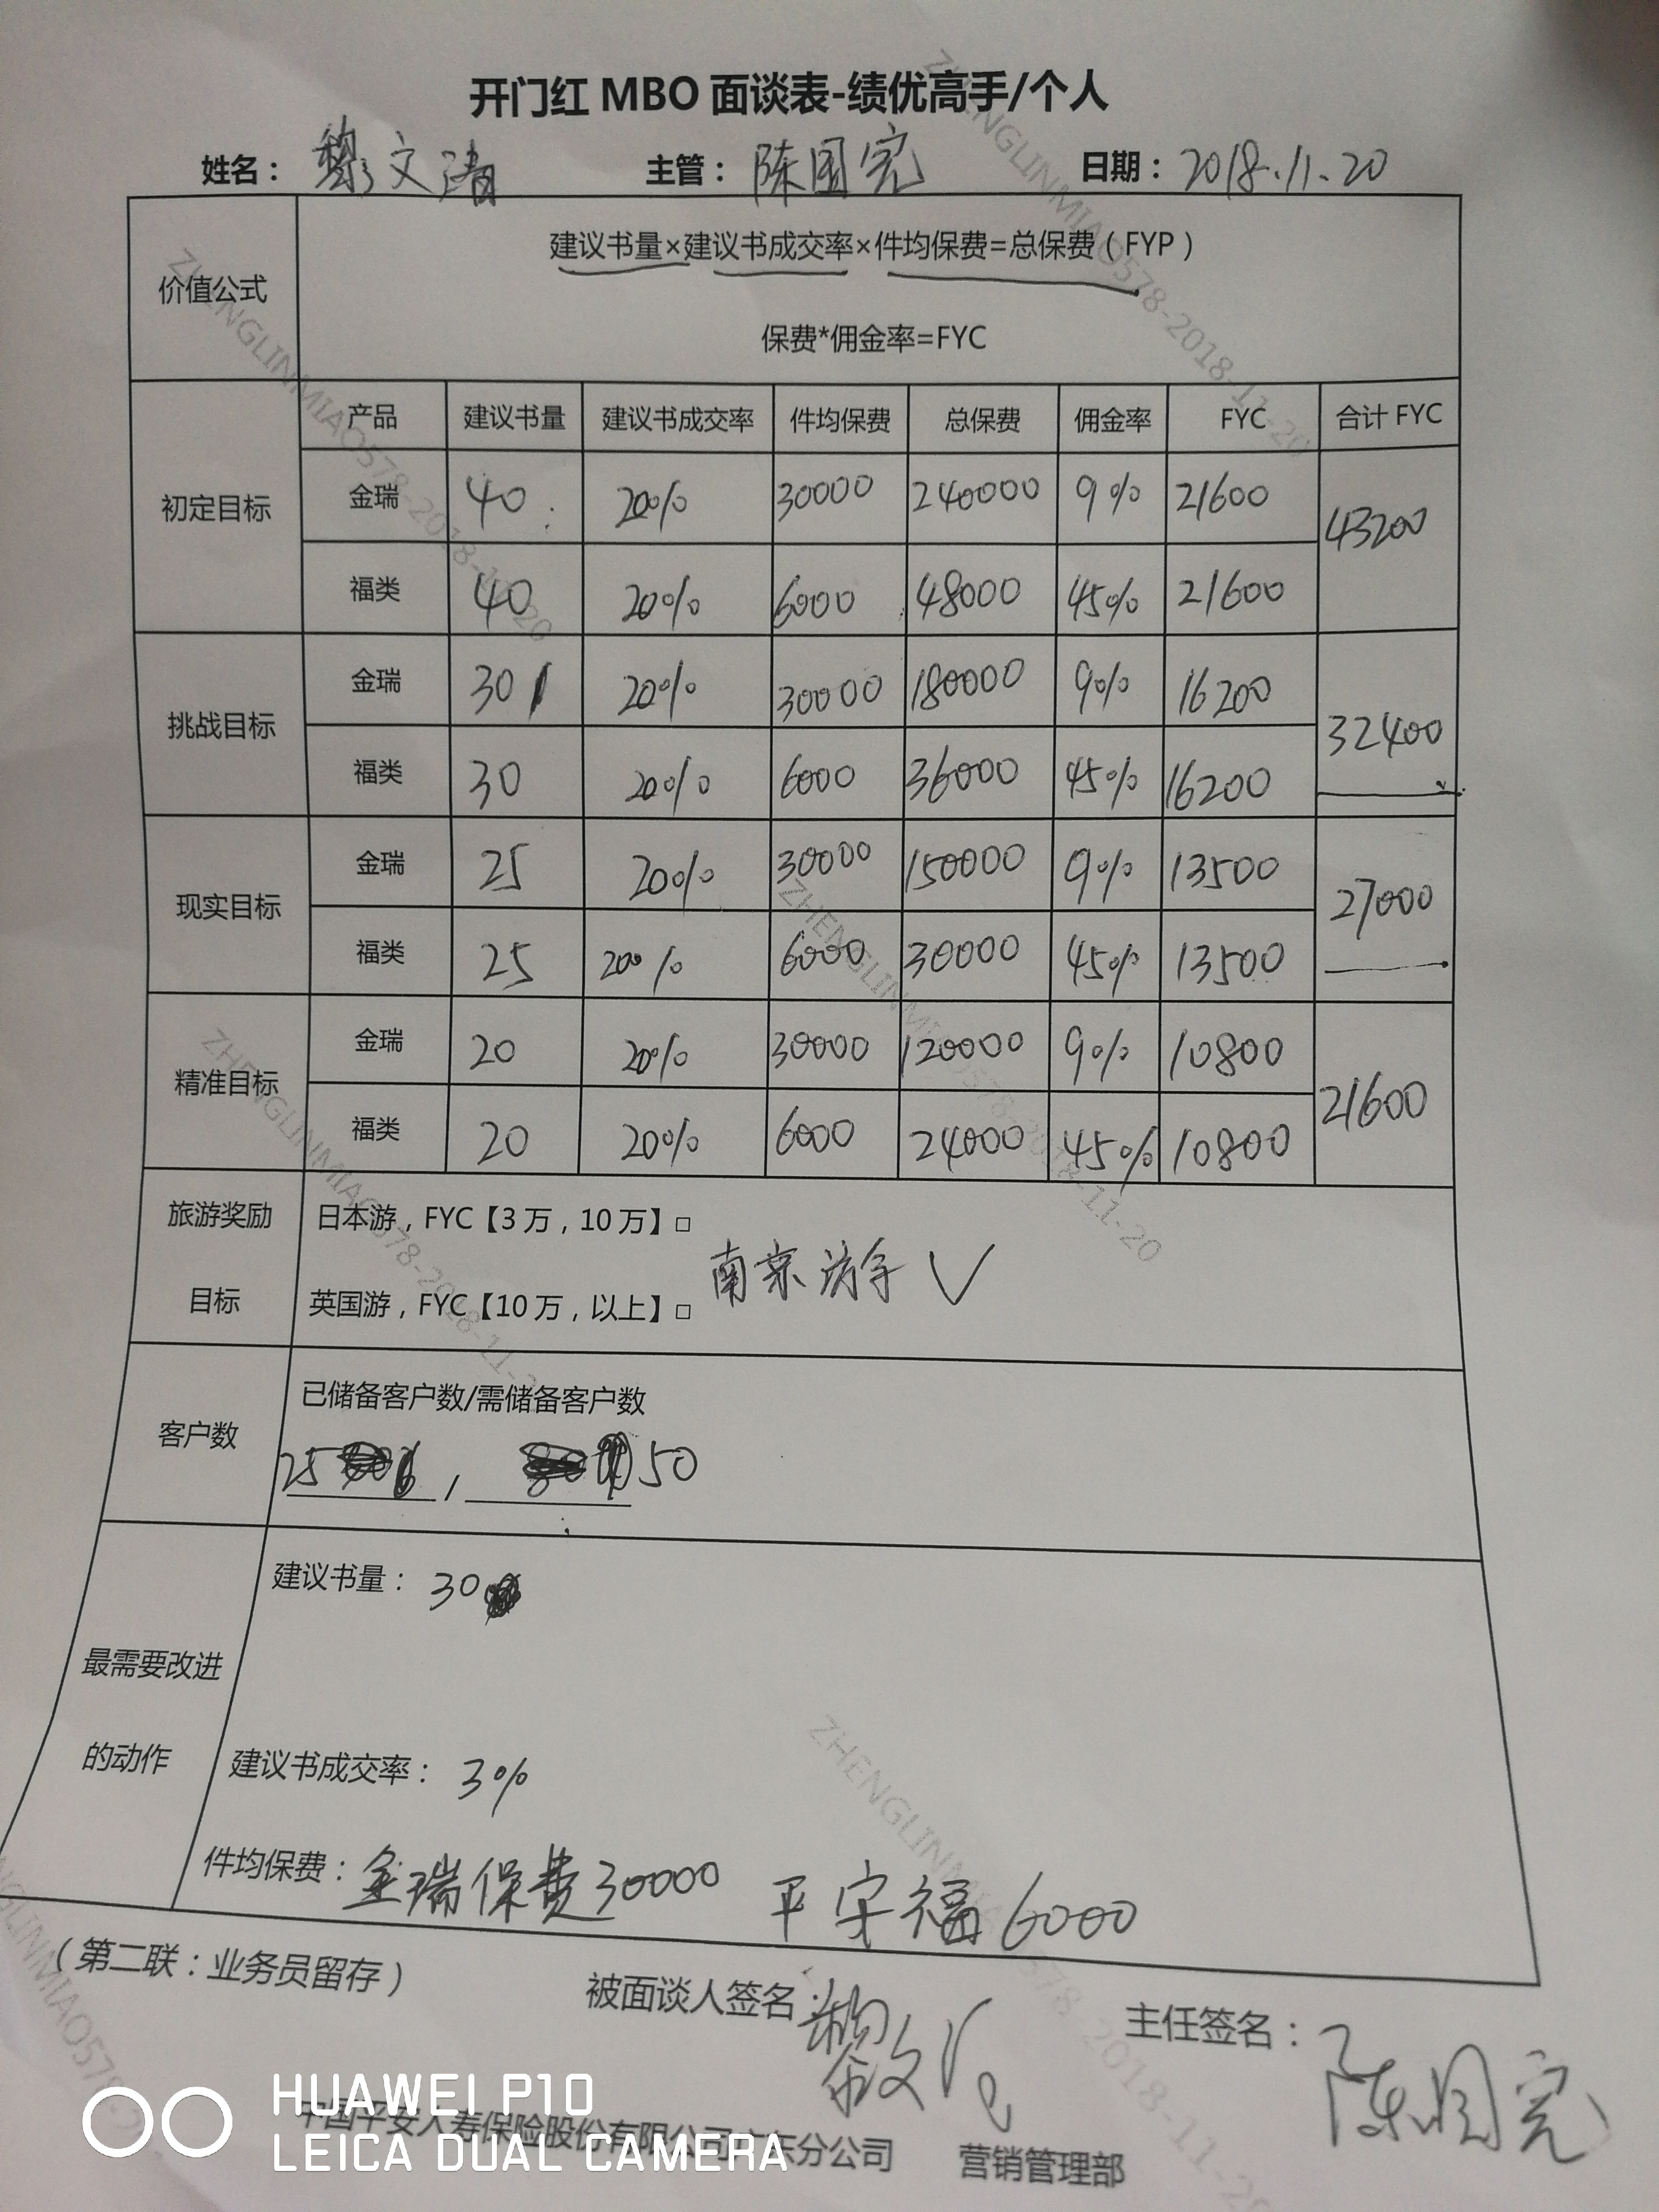 开门红 MBO 面谈表-绩优高手/个人
姓名： 黎文清 主管： 陈国宪 日期： 2018.11.20
价值公式
建议书量×建议书成交率×件均保费=总保费（FYP）
保费*佣金率=FYC
产品 建议书量 建议书成交率 件均保费 总保费 佣金率 FYC 合计 FYC
初定目标
金瑞 40 20% 30000 240000 9% 21600
43200
福类 40 20% 6000 48000 45% 21600
挑战目标
金瑞 30 20% 30000 180000 9% 16200
32400
福类 30 20% 6000 36000 45% 16200
现实目标
金瑞 25 20% 30000 150000 9% 13500
27000
福类 25 20% 6000 30000 45% 13500
精准目标
金瑞 20 20% 30000 120000 9% 10800
21600
福类 20 20% 6000 24000 45% 10800
旅游奖励
目标
日本游，FYC【3万，10万】□
南京游学 √
英国游，FYC【10万，以上】□
客户数
已储备客户数/需储备客户数
25 / 50
最需要改进
的动作
建议书量： 30
建议书成交率： 3%
件均保费： 金瑞保费30000 平安福6000
（第二联：业务员留存）
被面谈人签名： 黎文
主任签名： 陈国宪
中国平安人寿保险股份有限公司广东分公司 营销管理部
HUAWEI P10
LEICA DUAL CAMERA
ZHENGLINMIAO578-2018-11-20
ZHENGLINMIAO578-2018-11-20
ZHENGLINMIAO578-2018-11-20
ZHENGLINMIAO578-2018-11-20
ZHENGLINMIAO578-2018-11-20